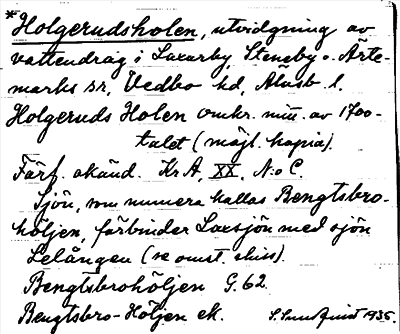 *Holgerudsholen, utvidgning av
vattendrag i Laxarby, Steneby o. Ärte-
marks sr, Vedbo hd, Älvsb l.
Holgeruds Holen omkr. mitt. av 1700-
talet (möjl. kopia).
Förf. okänd. Kr A, XX, N:o C.
Sjön, som numera kallas Bengtsbro-
höljen, förbinder Laxsjön med sjön
Lelången (se omst. skiss).
Bengtsbrohöljen G. 62.
Bengtsbro-Höljen ek. 1935